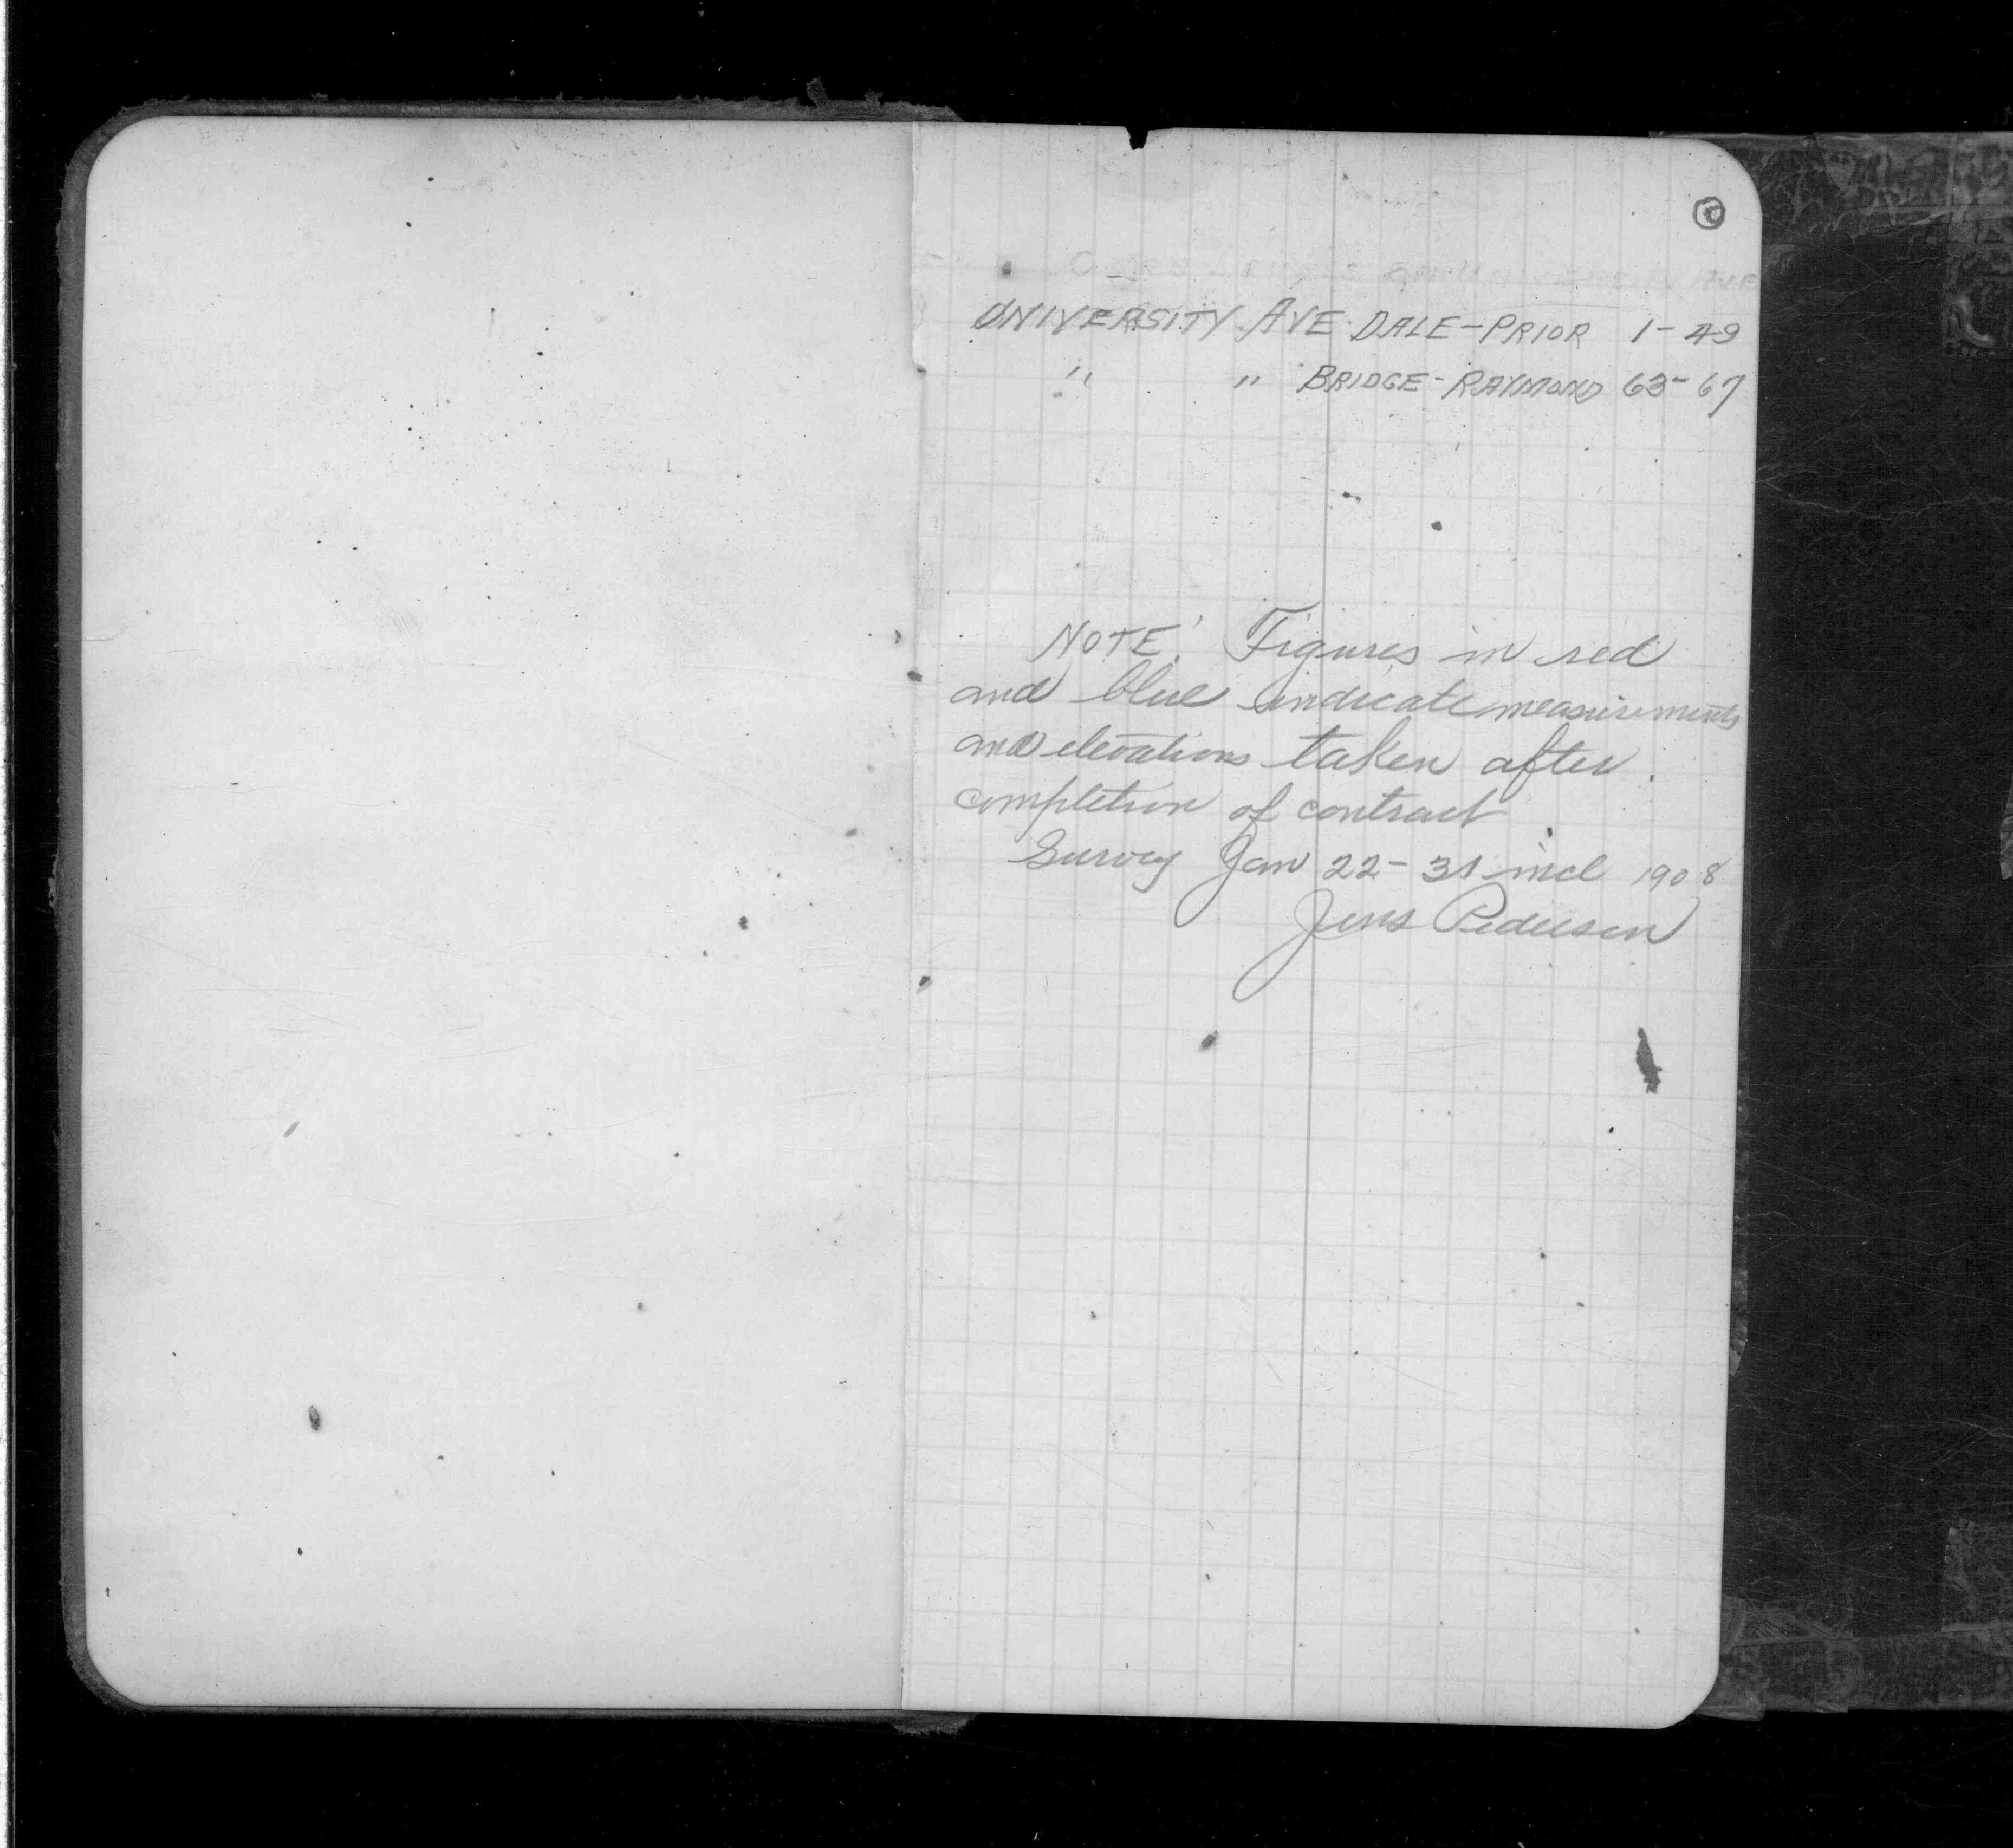 UNIVERSITY AVE DALE-PRIOR 1-49
" " BRIDGE-RAYMOND 63-67
NOTE: Figures in red
and blue indicate measurements
and elevations taken after
completion of contract
Survey Jan 22-31 incl 1908
Jens Pedersen